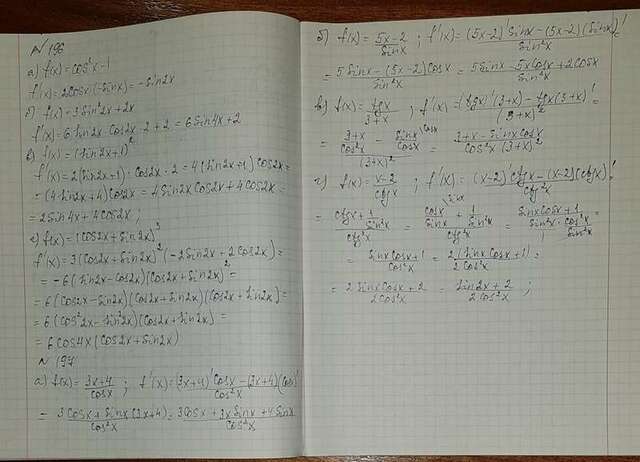 № 196
а) f(x) = cos²x - 1
f'(x) = 2cosx(-sinx) = -sin2x
б) f(x) = 3sin²2x + 2x
f'(x) = 6 sin2x · cos2x · 2 + 2 = 6sin4x + 2
в) f(x) = (sin2x+1)²
f'(x) = 2(sin2x+1) · cos2x · 2 = 4(sin2x+1) cos2x =
= (4sin2x+4)cos2x = 4sin2x cos2x + 4cos2x =
= 2sin4x + 4cos2x;
г) f(x) = (cos2x + sin2x)³
f'(x) = 3(cos2x + sin2x)² (-2sin2x + 2cos2x) =
= -6(sin2x - cos2x)(cos2x + sin2x)² =
= 6(cos2x - sin2x)(cos2x + sin2x)(cos2x + sin2x) =
= 6(cos²2x - sin²2x)(cos2x + sin2x) =
= 6cos4x(cos2x + sin2x)
№ 197
а) f(x) = (3x+4)/cosx ; f'(x) = ((3x+4)'cosx - (3x+4)(cosx)')/cos²x =
= (3cosx + sinx(3x+4))/cos²x = (3cosx + 3xsinx + 4sinx)/cos²x
б) f(x) = (5x-2)/sinx ; f'(x) = ((5x-2)'sinx - (5x-2)(sinx)')/sin²x =
= (5sinx - (5x-2)cosx)/sin²x = (5sinx - 5xcosx + 2cosx)/sin²x
в) f(x) = tgx/(3+x) ; f'(x) = ((tgx)'(3+x) - tgx(3+x)')/(3+x)² =
= ((3+x)/cos²x - sinx/cosx \cosx)/(3+x)² = (3+x - sinxcosx)/(cos²x(3+x)²)
г) f(x) = (x-2)/ctgx ; f'(x) = ((x-2)'ctgx - (x-2)(ctgx)')/ctg²x =
= (ctgx + 1/sin²x)/ctg²x = (cosx/sinx \sinx + 1/sin²x)/ctg²x = (sinxcosx+1)/(sin²x · cos²x/sin²x) =
= (sinxcosx+1)/cos²x = 2(sinxcosx+1)/2cos²x =
= (2sinxcosx+2)/2cos²x = (sin2x+2)/2cos²x ;